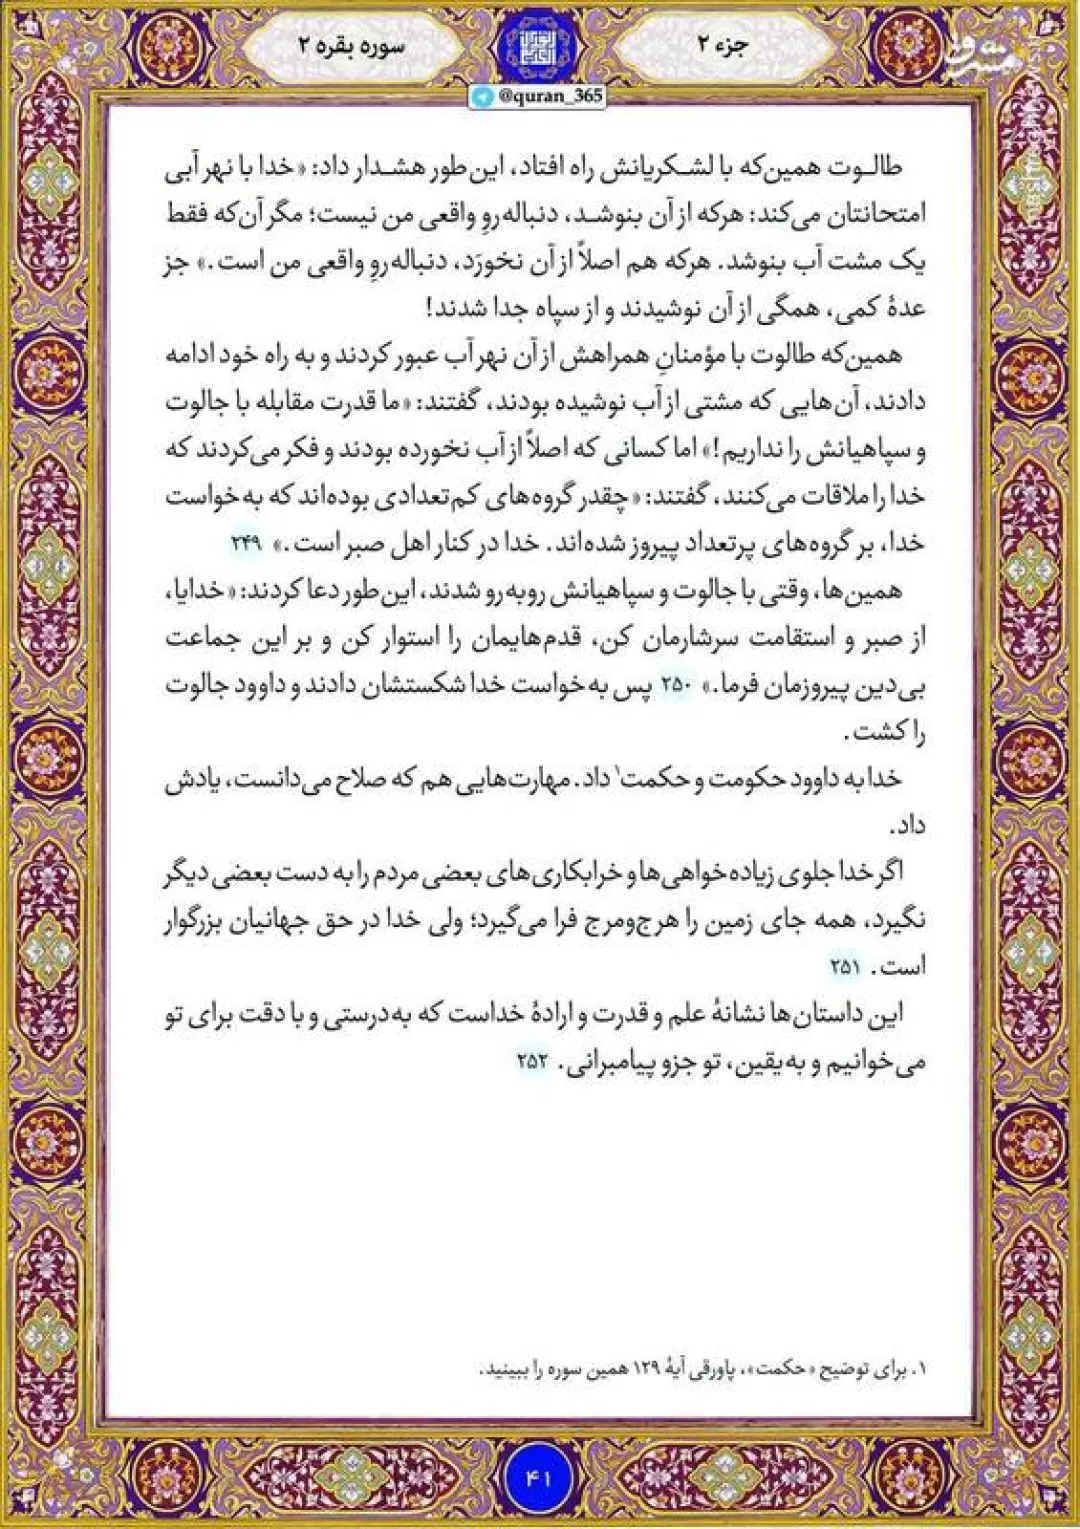 جزء ۲
سوره بقره ۲
@quran_365
مشرق
طالـوت همین‌که با لشـکریانش راه افتاد، این‌طور هشـدار داد: «خدا با نهر آبی
امتحانتان می‌کند: هرکه از آن بنوشـد، دنباله‌روِ واقعی من نیست؛ مگر آن‌که فقط
یک مشت آب بنوشد. هرکه هم اصلاً از آن نخورَد، دنباله‌روِ واقعی من است.» جز
عدهٔ کمی، همگی از آن نوشیدند و از سپاه جدا شدند!
همین‌که طالوت با مؤمنانِ همراهش از آن نهر آب عبور کردند و به راه خود ادامه
دادند، آن‌هایی که مشتی از آب نوشیده بودند، گفتند: «ما قدرت مقابله با جالوت
و سپاهیانش را نداریم!» اما کسانی که اصلاً از آب نخورده بودند و فکر می‌کردند که
خدا را ملاقات می‌کنند، گفتند: «چقدر گروه‌های کم‌تعدادی بوده‌اند که به‌خواست
خدا، بر گروه‌های پرتعداد پیروز شده‌اند. خدا در کنار اهل صبر است.» ۲۴۹
همین‌ها، وقتی با جالوت و سپاهیانش روبه‌رو شدند، این‌طور دعا کردند: «خدایا،
از صبر و استقامت سرشارمان کن، قدم‌هایمان را استوار کن و بر این جماعت
بی‌دین پیروزمان فرما.» ۲۵۰ پس به‌خواست خدا شکستشان دادند و داوود جالوت
را کشت.
خدا به داوود حکومت و حکمت۱ داد. مهارت‌هایی هم که صلاح می‌دانست، یادش
داد.
اگر خدا جلوی زیاده‌خواهی‌ها و خرابکاری‌های بعضی مردم را به دست بعضی دیگر
نگیرد، همه جای زمین را هرج‌ومرج فرا می‌گیرد؛ ولی خدا در حق جهانیان بزرگوار
است. ۲۵۱
این داستان‌ها نشانهٔ علم و قدرت و ارادهٔ خداست که به‌درستی و با دقت برای تو
می‌خوانیم و به‌یقین، تو جزو پیامبرانی. ۲۵۲
۱. برای توضیح «حکمت»، پاورقی آیهٔ ۱۲۹ همین سوره را ببینید.
۴۱